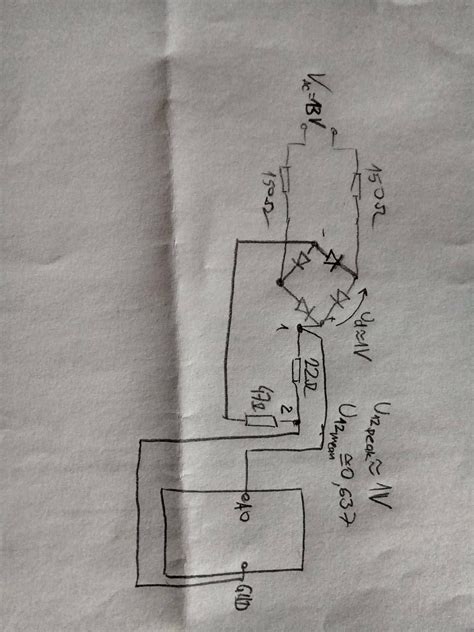 V_AC=13V
150Ω
150Ω
-
+
U_d≈1V
1
22Ω
2
47Ω
U_12peak≈1V
U_12mean≅0,637
A0
GND